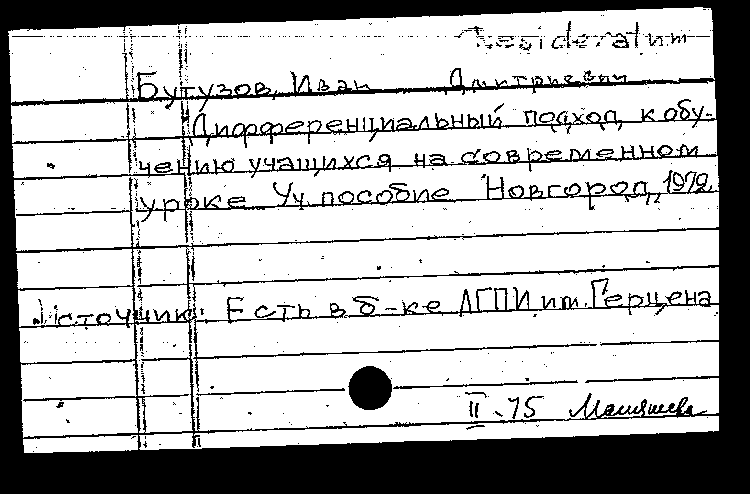 Desideratum
Бутузов, Иван Дмитриевич
Дифференциальный подход к обу-
чению учащихся на современном
уроке. Уч. пособие Новгород, 1972.
Источник: Есть в б-ке ЛГПИ им. Герцена
II - 75